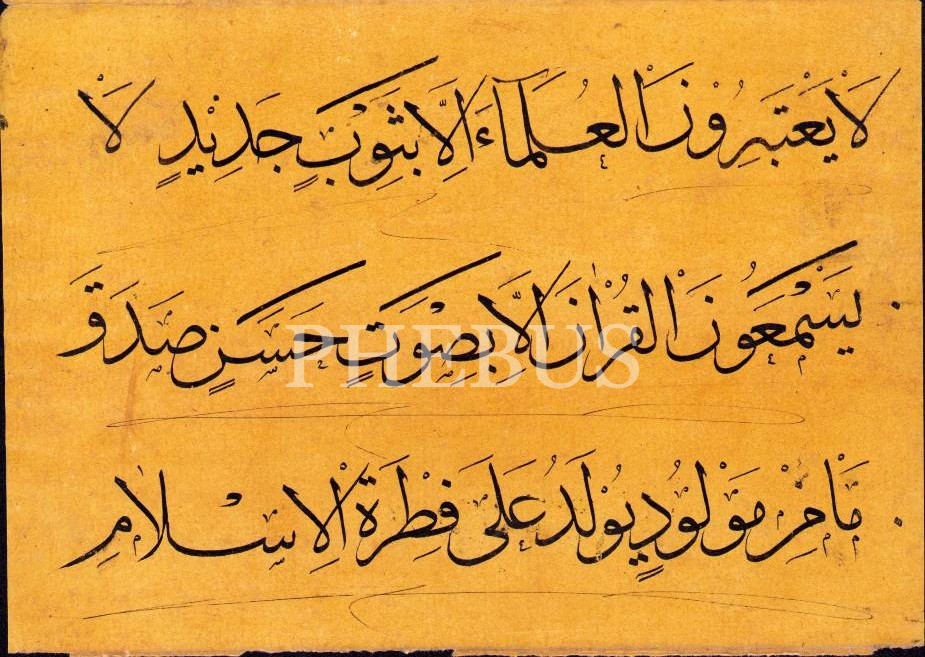 لَا يَعْتَبِرُوْنَ الْعُلَمَآءَ اِلَّا بِثَوْبٍ جَدِيْدٍ لَا
يَسْمَعُوْنَ الْقُرْاٰنَ اِلَّا بِصَوْتٍ حَسَنٍ صَدَقَ
مَا مِنْ مَوْلُوْدٍ يُولَدُ عَلٰى فِطْرَةِ الْاِسْلَامِ
PHEBUS